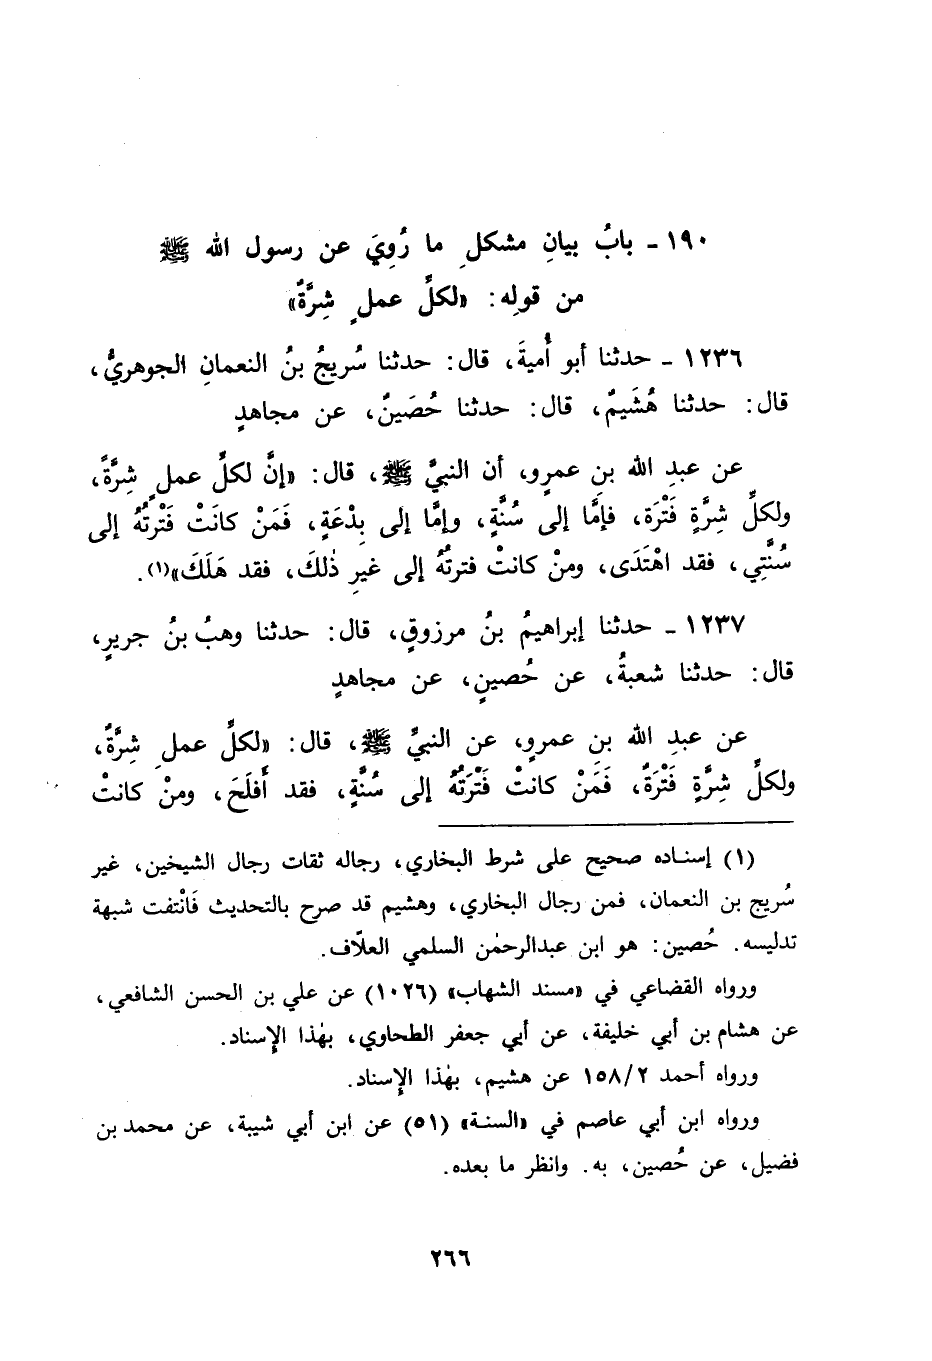 ١٩٠ ـ بابُ بيانِ مشكلِ ما رُوِيَ عن رسول الله ﷺ
من قولِه: «لكلِّ عملٍ شِرَّةٌ»
١٢٣٦ ـ حدثنا أبو أُميةَ، قال: حدثنا سُريجُ بنُ النعمانِ الجوهريُّ،
قال: حدثنا هُشَيمٌ، قال: حدثنا حُصَينٌ، عن مجاهدٍ
عن عبدِ الله بنِ عمرٍو، أن النبيَّ ﷺ، قال: «إنَّ لكلِّ عملٍ شِرَّةً،
ولكلِّ شِرَّةٍ فَتْرَة، فإمَّا إلى سُنَّةٍ، وإمَّا إلى بِدْعَةٍ، فَمَنْ كانَتْ فَتْرتُهُ إلى
سُنَّتِي، فقد اهْتَدَى، ومنْ كانتْ فترتُهُ إلى غيرِ ذٰلكَ، فقد هَلَكَ»(١).
١٢٣٧ ـ حدثنا إبراهيمُ بنُ مرزوقٍ، قال: حدثنا وهبُ بنُ جريرٍ،
قال: حدثنا شعبةُ، عن حُصينٍ، عن مجاهدٍ
عن عبدِ الله بنِ عمرٍو، عن النبيِّ ﷺ، قال: «لكلِّ عملٍ شِرَّةٌ،
ولكلِّ شِرَّةٍ فَتْرَةٌ، فَمَنْ كانتْ فَتْرَتُهُ إلى سُنَّةٍ، فقد أَفْلَحَ، ومنْ كانتْ
(١) إسناده صحيح على شرط البخاري، رجاله ثقات رجال الشيخين، غير
سُريج بن النعمان، فمن رجال البخاري، وهشيم قد صرح بالتحديث فَانْتفت شبهة
تدليسه. حُصين: هو ابن عبدالرحمٰن السلمي العلاّف.
ورواه القضاعي في «مسند الشهاب» (١٠٢٦) عن علي بن الحسن الشافعي،
عن هشام بن أبي خليفة، عن أبي جعفر الطحاوي، بهٰذا الإِسناد.
ورواه أحمد ١٥٨/٢ عن هشيم، بهٰذا الإِسناد.
ورواه ابن أبي عاصم في «السنة» (٥١) عن ابن أبي شيبة، عن محمد بن
فضيل، عن حُصين، به. وانظر ما بعده.
٢٦٦